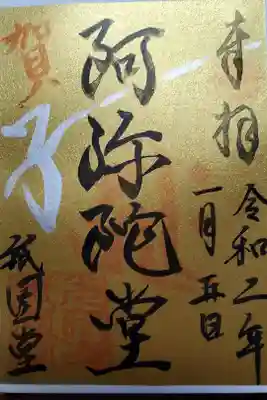 奉拝
令和二年
一月五日
阿弥陀堂
賀
子
祇園堂